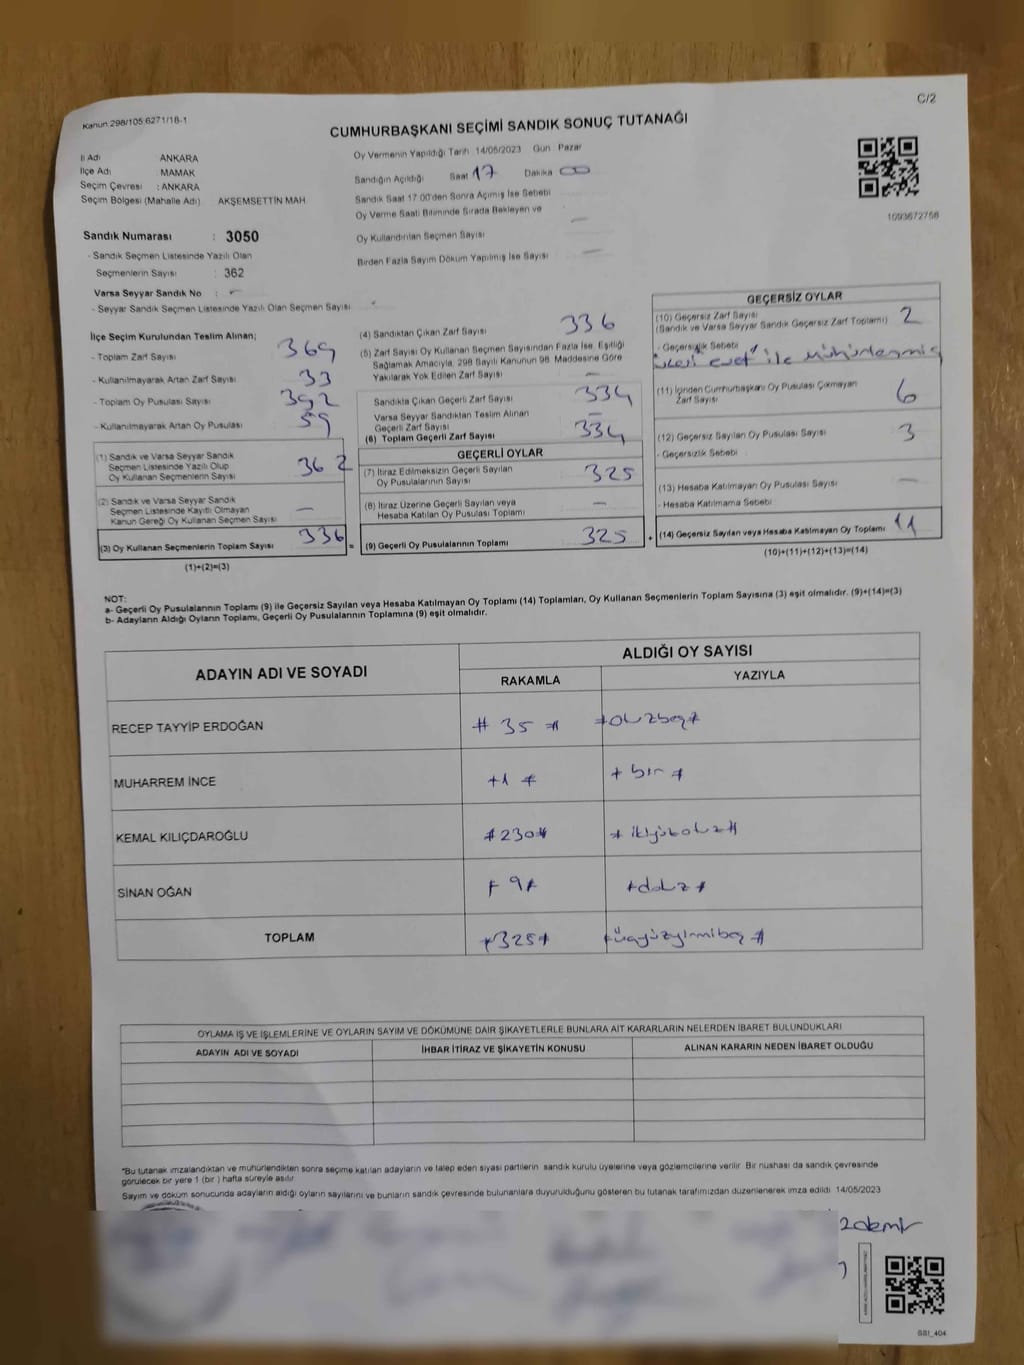 C/2
Kanun 298/105 6271/18-1
CUMHURBAŞKANI SEÇİMİ SANDIK SONUÇ TUTANAĞI
İl Adı ANKARA
İlçe Adı MAMAK
Seçim Çevresi : ANKARA
Seçim Bölgesi (Mahalle Adı) AKŞEMSETTİN MAH
Oy Vermenin Yapıldığı Tarih 14/05/2023 Gün Pazar
Sandığın Açıldığı Saat 17 Dakika 00
Sandık Saat 17 00'den Sonra Açımış İse Sebebi
Oy Verme Saati Bitiminde Sırada Bekleyen ve
Oy Kullandırılan Seçmen Sayısı —
Birden Fazla Sayım Döküm Yapılmış İse Sayısı —
1093672758
Sandık Numarası : 3050
- Sandık Seçmen Listesinde Yazılı Olan
Seçmenlerin Sayısı : 362
Varsa Seyyar Sandık No : —
- Seyyar Sandık Seçmen Listesinde Yazılı Olan Seçmen Sayısı
İlçe Seçim Kurulundan Teslim Alınan;
- Toplam Zarf Sayısı 369
- Kullanılmayarak Artan Zarf Sayısı 33
- Toplam Oy Pusulası Sayısı 392
- Kullanılmayarak Artan Oy Pusulası 59
(1) Sandık ve Varsa Seyyar Sandık
Seçmen Listesinde Yazılı Olup
Oy Kullanan Seçmenlerin Sayısı 362
(2) Sandık ve Varsa Seyyar Sandık
Seçmen Listesinde Kayıtlı Olmayan
Kanun Gereği Oy Kullanan Seçmen Sayısı —
(3) Oy Kullanan Seçmenlerin Toplam Sayısı 336 =
(1)+(2)=(3)
(4) Sandıktan Çıkan Zarf Sayısı 336
(5) Zarf Sayısı Oy Kullanan Seçmen Sayısından Fazla İse, Eşitliği
Sağlamak Amacıyla, 298 Sayılı Kanunun 98. Maddesine Göre
Yakılarak Yok Edilen Zarf Sayısı —
Sandıkta Çıkan Geçerli Zarf Sayısı 334
Varsa Seyyar Sandıktan Teslim Alınan
Geçerli Zarf Sayısı —
(6) Toplam Geçerli Zarf Sayısı 334
GEÇERLİ OYLAR
(7) İtiraz Edilmeksizin Geçerli Sayılan
Oy Pusulalarının Sayısı 325
(8) İtiraz Üzerine Geçerli Sayılan veya
Hesaba Katılan Oy Pusulası Toplamı —
(9) Geçerli Oy Pusulalarının Toplamı 325 +
GEÇERSİZ OYLAR
(10) Geçersiz Zarf Sayısı
(Sandık ve Varsa Seyyar Sandık Geçersiz Zarf Toplamı) 2
- Geçersizlik Sebebi
evet" ile mühürlenmiş
(11) İçinden Cumhurbaşkanı Oy Pusulası Çıkmayan
Zarf Sayısı 6
(12) Geçersiz Sayılan Oy Pusulası Sayısı 3
- Geçersizlik Sebebi
(13) Hesaba Katılmayan Oy Pusulası Sayısı —
- Hesaba Katılmama Sebebi
(14) Geçersiz Sayılan veya Hesaba Katılmayan Oy Toplamı 11
(10)+(11)+(12)+(13)=(14)
NOT:
a- Geçerli Oy Pusulalarının Toplamı (9) ile Geçersiz Sayılan veya Hesaba Katılmayan Oy Toplamı (14) Toplamları, Oy Kullanan Seçmenlerin Toplam Sayısına (3) eşit olmalıdır. (9)+(14)=(3)
b- Adayların Aldığı Oyların Toplamı, Geçerli Oy Pusulalarının Toplamına (9) eşit olmalıdır.
ADAYIN ADI VE SOYADI ALDIĞI OY SAYISI
RAKAMLA YAZIYLA
RECEP TAYYİP ERDOĞAN # 35 # #otuzbeş#
MUHARREM İNCE #1 # # bir #
KEMAL KILIÇDAROĞLU #230# # ikiyüzotuz#
SİNAN OĞAN # 9# #dokuz#
TOPLAM #325# #üçyüzyirmibeş #
OYLAMA İŞ VE İŞLEMLERİNE VE OYLARIN SAYIM VE DÖKÜMÜNE DAİR ŞİKAYETLERLE BUNLARA AİT KARARLARIN NELERDEN İBARET BULUNDUKLARI
ADAYIN ADI VE SOYADI İHBAR İTİRAZ VE ŞİKAYETİN KONUSU ALINAN KARARIN NEDEN İBARET OLDUĞU
*Bu tutanak imzalandıktan ve mühürlendikten sonra seçime katılan adayların ve talep eden siyasi partilerin sandık kurulu üyelerine veya gözlemcilerine verilir. Bir nüshası da sandık çevresinde
görülecek bir yere 1 (bir) hafta süreyle asılır
Sayım ve döküm sonucunda adayların aldığı oyların sayılarını ve bunların sandık çevresinde bulunanlara duyurulduğunu gösteren bu tutanak tarafımızdan düzenlenerek imza edildi 14/05/2023
SSI_404